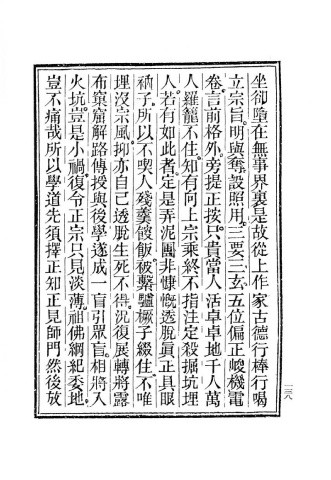 坐卻墮在無事界裏是故從上作家古德行棒行喝
立宗旨明與奪設照用三要三玄五位偏正峻機電
卷言前格外旁提正按只貴當人活卓卓地千人萬
人羅籠不住知有向上宗乘終不指注定殺掘坑埋
人若有如此者定是弄泥團非慷慨透脫真正具眼
衲子所以不喫人殘羹餿飯被繫驢橛子綴住不唯
埋沒宗風抑亦自己透脫生死不得況復展轉將露
布窠窟解路傳授與後學遂成一盲引眾盲相將入
火坑豈是小禍復令正宗只見淡薄祖佛綱紀委地
豈不痛哉所以學道先須擇正知正見師門然後放
一三八